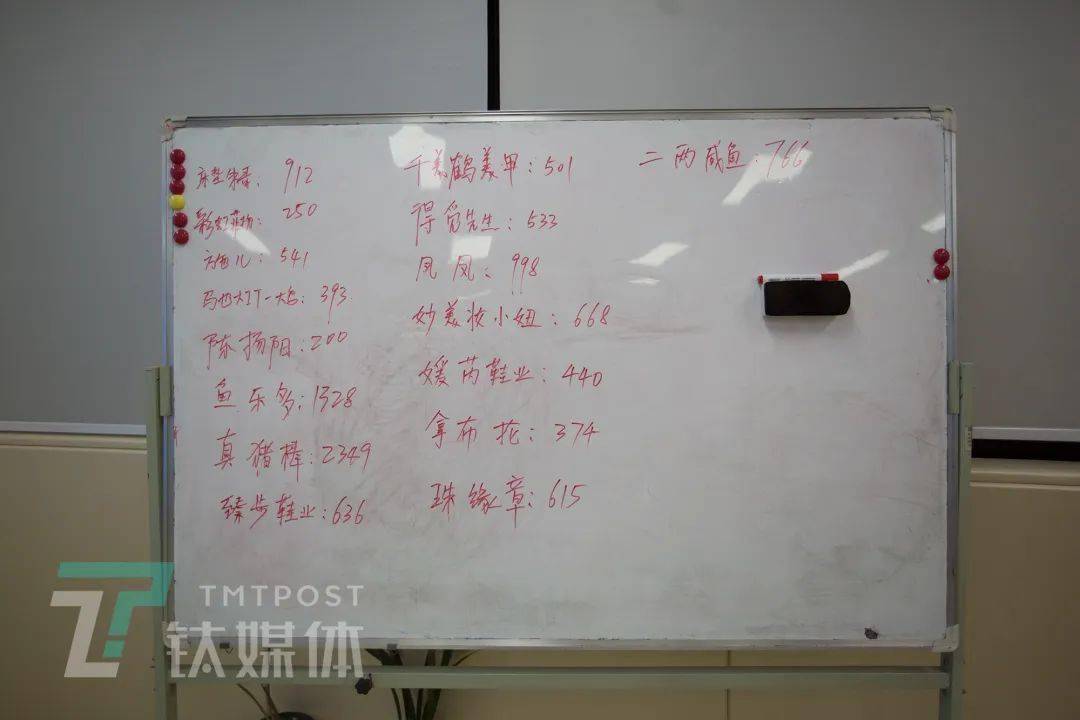 912
彩虹 : 250
方包儿 : 541
马也大JT-大鸟 : 393
陈扬阳 : 200
鱼乐多 : 1328
真猪棒 : 2349
臻步鞋业 : 636
千美鹤美甲 : 501
得觅先生 : 533
凤凤 : 998
妙美妆小妞 : 668
媛芮鞋业 : 440
拿布拉 : 374
珠缘章 : 615
二两咸鱼 : 766
TMTPOST
钛媒体